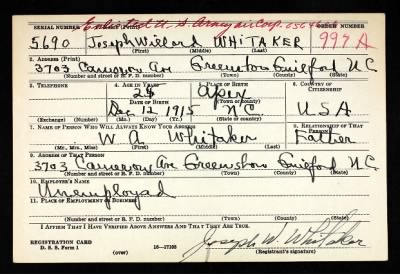 Enlisted U.S. Army air Corp.
SERIAL NUMBER 1. NAME (Print) ORDER NUMBER
5690 Joseph Willard WHITAKER 997A
(First) (Middle) (Last)
2. ADDRESS (Print)
3703 Cameron Ave Greensboro Guilford N.C.
(Number and street or R. F. D. number) (Town) (County) (State)
3. TELEPHONE 4. AGE IN YEARS 5. PLACE OF BIRTH 6. COUNTRY OF CITIZENSHIP
24
DATE OF BIRTH (Town or county)
Dec 12 1915 N C U.S.A
(Exchange) (Number) (Mo.) (Day) (Yr.) (State or country)
7. NAME OF PERSON WHO WILL ALWAYS KNOW YOUR ADDRESS 8. RELATIONSHIP OF THAT PERSON
W Whitaker Father
(Mr., Mrs., Miss) (First) (Middle) (Last)
9. ADDRESS OF THAT PERSON
3703 Cameron Ave Greensboro Guilford N.C.
(Number and street or R. F. D. number) (Town) (County) (State)
10. EMPLOYER'S NAME
Unemployed
11. PLACE OF EMPLOYMENT OR BUSINESS
(Number and street or R. F. D. number) (Town) (County) (State)
I AFFIRM THAT I HAVE VERIFIED ABOVE ANSWERS AND THAT THEY ARE TRUE.
Joseph W. Whitaker
REGISTRATION CARD
D. S. S. Form 1 (over) 16—17105 (Registrant's signature)